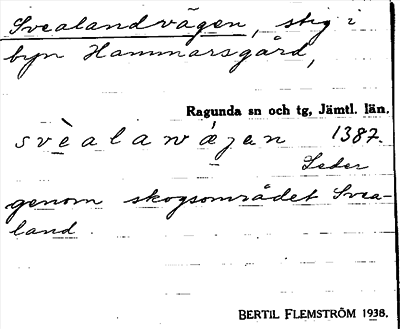 Svealandvägen, stig i
byn Hammarsgård,
Ragunda sn och tg, Jämtl. län.
svèalawá̤jen 1387.
Leder
genom skogsområdet Svea-
land.
BERTIL FLEMSTRÖM 1938.